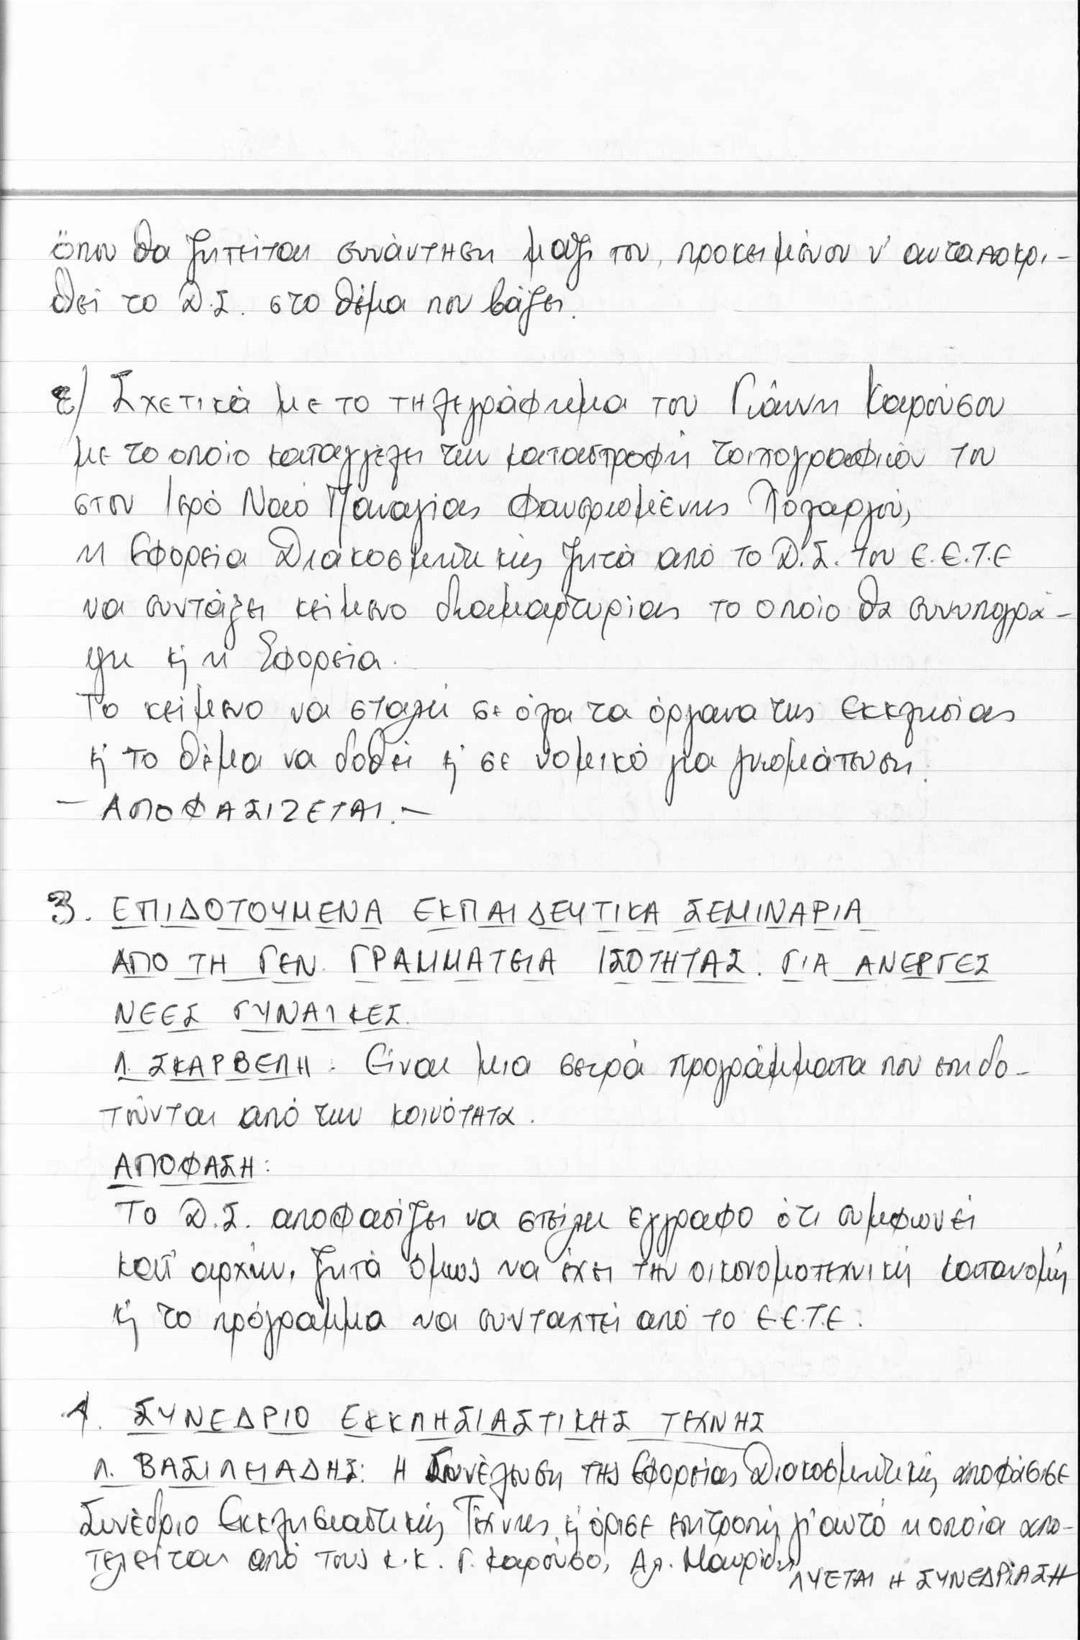 όπου θα ζητείται συνάντηση μαζί του, προκειμένου ν' ανταποκρι-
θεί το Δ.Σ. στο θέμα που βάζει.
ε) Σχετικά με το τηλεγράφημα του Γιάννη Καρούσου
με το οποίο καταγγέλει την καταστροφή τοιχογραφιών του
στον Ιερό Ναό Παναγίας Φανερωμένης Χολαργού,
η Εφορεία Διακοσμητικής ζητά από το Δ.Σ. του Ε.Ε.Τ.Ε
να συντάξει κείμενο διαμαρτυρίας το οποίο θα συνυπογρά-
ψει κ' η Εφορεία.
Το κείμενο να σταλή σε όλα τα όργανα της Εκκλησίας
κ' το θέμα να δοθεί κ' σε νομικό για γνωμάτευση.
— ΑΠΟΦΑΣΙΖΕΤΑΙ. —
3. ΕΠΙΔΟΤΟΥΜΕΝΑ ΕΚΠΑΙΔΕΥΤΙΚΑ ΣΕΜΙΝΑΡΙΑ
ΑΠΟ ΤΗ ΓΕΝ. ΓΡΑΜΜΑΤΕΙΑ ΙΣΟΤΗΤΑΣ. ΓΙΑ ΑΝΕΡΓΕΣ
ΝΕΕΣ ΓΥΝΑΙΚΕΣ.
Λ. ΣΚΑΡΒΕΛΗ: Είναι μια σειρά προγράμματα που επιδο-
τούνται από την κοινότητα.
ΑΠΟΦΑΣΗ:
Το Δ.Σ. αποφασίζει να στείλει έγγραφο ότι συμφωνεί
κατ' αρχήν, ζητά όμως να έχει την οικονομοτεχνική κατανομή
κ' το πρόγραμμα να συνταχτεί από το Ε.Ε.Τ.Ε.
4. ΣΥΝΕΔΡΙΟ ΕΚΚΛΗΣΙΑΣΤΙΚΗΣ ΤΕΧΝΗΣ
Λ. ΒΑΣΙΛΕΙΑΔΗΣ: Η Συνέλευση της Εφορείας Διακοσμητικής αποφάσισε
Συνέδριο Εκκλησιαστικής Τέχνης, κ' όρισε επιτροπή γι' αυτό η οποία απο-
τελείται από τους κ.κ. Γ. Καρούσο, Αλ. Μαυρίδη
ΛΥΕΤΑΙ Η ΣΥΝΕΔΡΙΑΣΗ